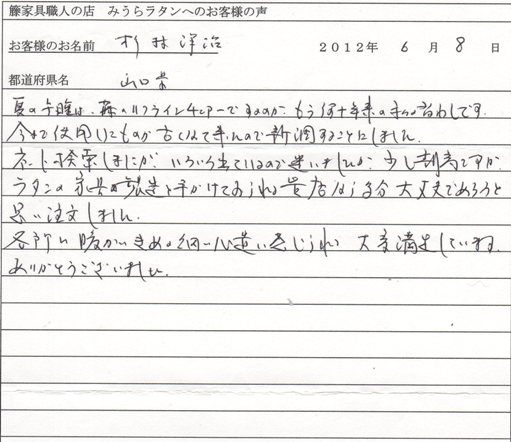 籐家具職人の店 みうらラタンへのお客様の声
お客様のお名前 杉林 洋治 2012年 6月 8日
都道府県名 山口県
夏の午睡は、籐のリクライニングチェアーでするのが、もう何十年来の習わしです。
今まで使用したものが古くなって来たので新調することにしました。
ネット検索しましたが、いろいろ出ているので迷いましたが、少し割高ですが、
ラタンの家具の製造を手がけておられる貴店なら多分大丈夫であろうと
思い注文しました。
各所に暖かいきめの細い心遣い感じられ、大変満足しています。
ありがとうございました。